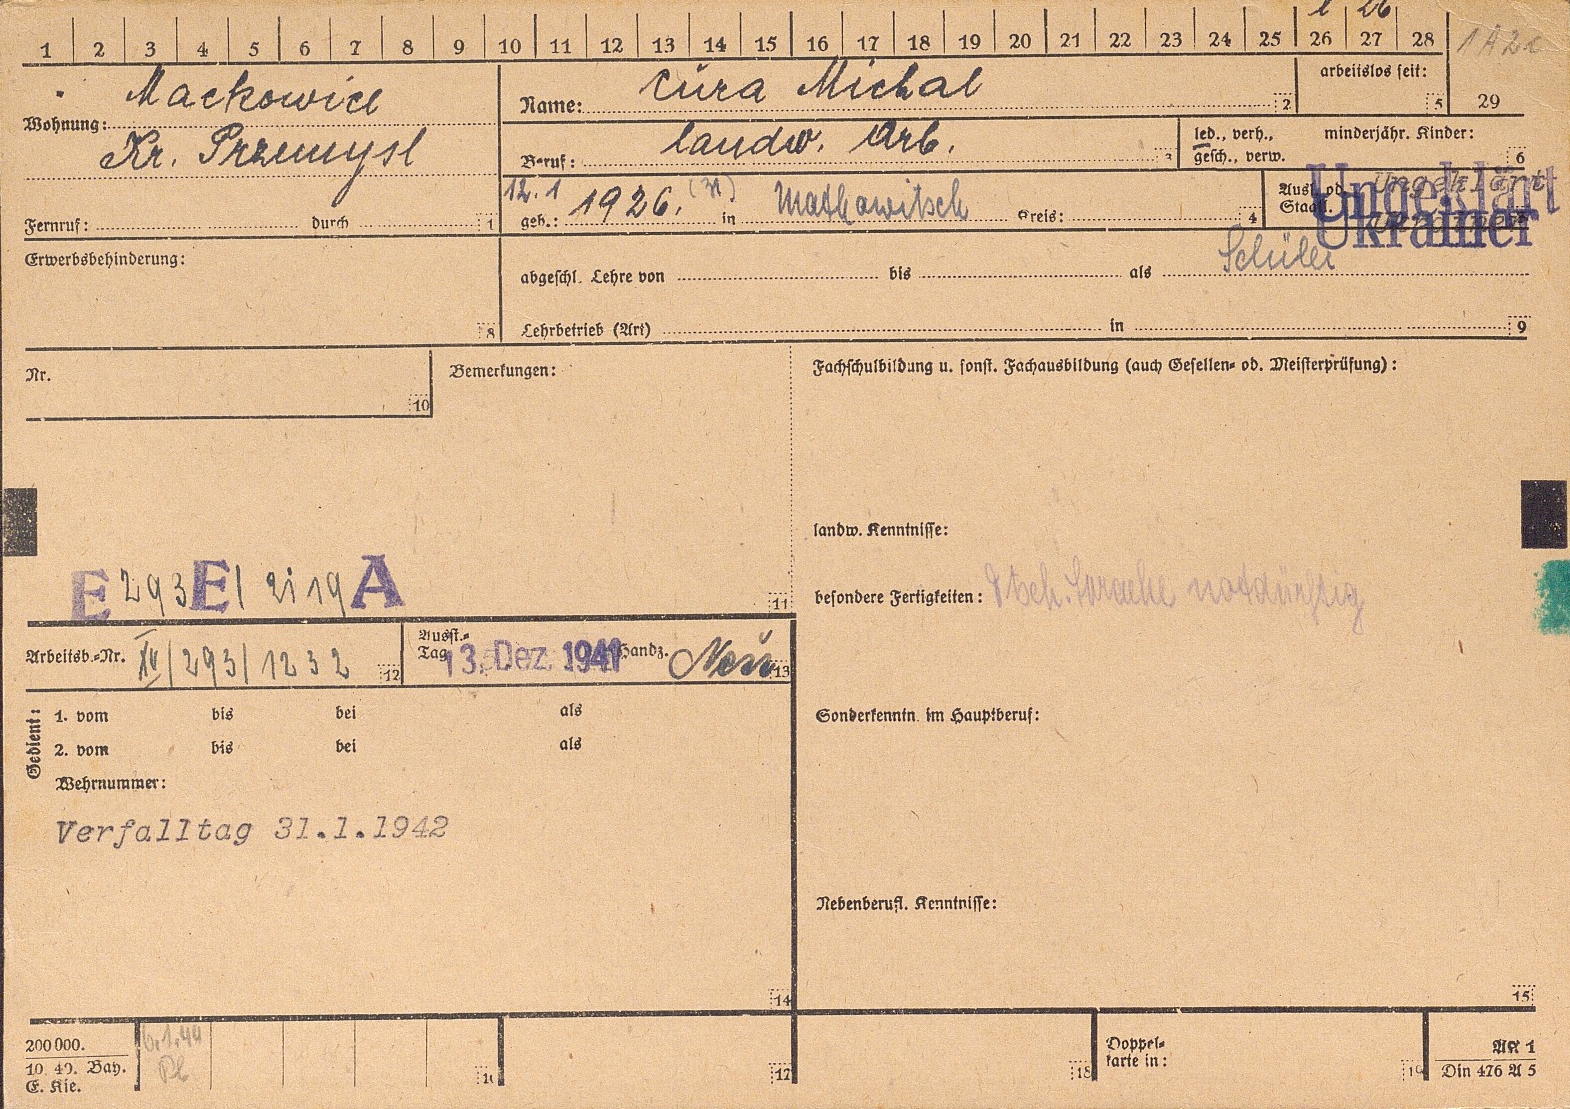 1 2 3 4 5 6 7 8 9 10 11 12 13 14 15 16 17 18 19 20 21 22 23 24 25 26 27 28
26
Mackowice
Wohnung:
Kr. Przemysl
Fernruf: durch 1
Name: Cura Michal 2
arbeitslos seit: 5
29
Beruf: landw. Arb. 3
led., verh., minderjähr. Kinder:
gesch., verw. 6
12.1
geb.: 1926. in Mackowitsch Kreis: 4
Ausl. od.
Staatl.
Ungeklärt
Ungeklärt
Ukrainer
Erwerbsbehinderung: 8
Schüler
abgeschl. Lehre von bis als
Lehrbetrieb (Art) in 9
Nr. 10
Bemerkungen:
E 293 E / 2i 19 A
11
Arbeitsb.-Nr. XV/293/1232 12
Ausst.-
Tag 13. Dez. 1941 Handz. 13
Gedient:
1. vom bis bei als
2. vom bis bei als
Wehrnummer:
Verfalltag 31.1.1942
14
Fachschulbildung u. sonst. Fachausbildung (auch Gesellen- od. Meisterprüfung):
landw. Kenntnisse:
besondere Fertigkeiten: Dtsch. Sprache notdürftig
Sonderkenntn. im Hauptberuf:
Nebenberufl. Kenntnisse:
15
200 000.
10. 40. Bay.
E. Kie.
6.1.44
16
17
18
Doppel-
karte in:
19
AK 1
Din 476 A 5